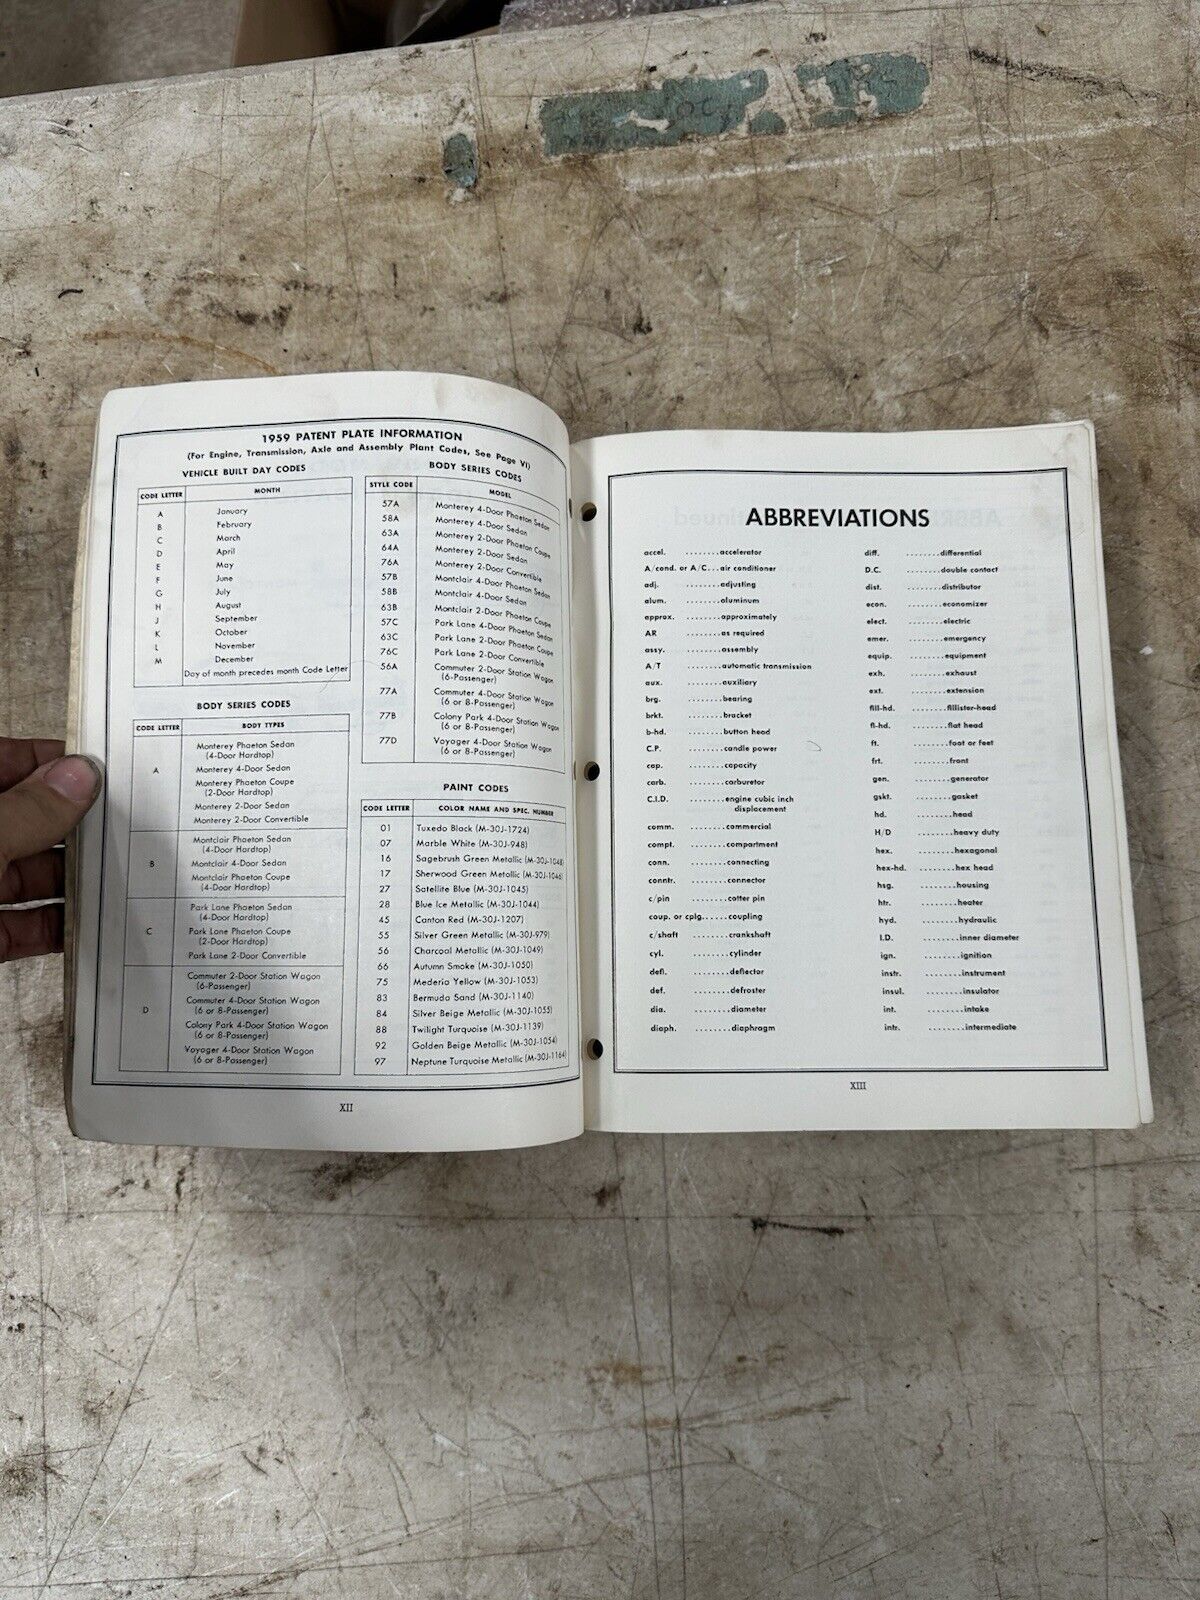 1959 PATENT PLATE INFORMATION
(For Engine, Transmission, Axle and Assembly Plant Codes, See Page VI)
VEHICLE BUILT DAY CODES
CODE LETTER MONTH
A January
B February
C March
D April
E May
F June
G July
H August
J September
K October
L November
M December
Day of month precedes month Code Letter
BODY SERIES CODES
CODE LETTER BODY TYPES
Monterey Phaeton Sedan
(4-Door Hardtop)
A Monterey 4-Door Sedan
Monterey Phaeton Coupe
(2-Door Hardtop)
Monterey 2-Door Sedan
Monterey 2-Door Convertible
Montclair Phaeton Sedan
(4-Door Hardtop)
B Montclair 4-Door Sedan
Montclair Phaeton Coupe
(4-Door Hardtop)
Park Lane Phaeton Sedan
(4-Door Hardtop)
C Park Lane Phaeton Coupe
(2-Door Hardtop)
Park Lane 2-Door Convertible
Commuter 2-Door Station Wagon
(6-Passenger)
Commuter 4-Door Station Wagon
(6 or 8-Passenger)
D Colony Park 4-Door Station Wagon
(6 or 8-Passenger)
Voyager 4-Door Station Wagon
(6 or 8-Passenger)
BODY SERIES CODES
STYLE CODE MODEL
57A Monterey 4-Door Phaeton Sedan
58A Monterey 4-Door Sedan
63A Monterey 2-Door Phaeton Coupe
64A Monterey 2-Door Sedan
76A Monterey 2-Door Convertible
57B Montclair 4-Door Phaeton Sedan
58B Montclair 4-Door Sedan
63B Montclair 2-Door Phaeton Coupe
57C Park Lane 4-Door Phaeton Sedan
63C Park Lane 2-Door Phaeton Coupe
76C Park Lane 2-Door Convertible
56A Commuter 2-Door Station Wagon
(6-Passenger)
77A Commuter 4-Door Station Wagon
(6 or 8-Passenger)
77B Colony Park 4-Door Station Wagon
(6 or 8-Passenger)
77D Voyager 4-Door Station Wagon
(6 or 8-Passenger)
PAINT CODES
CODE LETTER COLOR NAME AND SPEC. NUMBER
01 Tuxedo Black (M-30J-1724)
07 Marble White (M-30J-948)
16 Sagebrush Green Metallic (M-30J-1048)
17 Sherwood Green Metallic (M-30J-1046)
27 Satellite Blue (M-30J-1045)
28 Blue Ice Metallic (M-30J-1044)
45 Canton Red (M-30J-1207)
55 Silver Green Metallic (M-30J-979)
56 Charcoal Metallic (M-30J-1049)
66 Autumn Smoke (M-30J-1050)
75 Mederia Yellow (M-30J-1053)
83 Bermuda Sand (M-30J-1140)
84 Silver Beige Metallic (M-30J-1055)
88 Twilight Turquoise (M-30J-1139)
92 Golden Beige Metallic (M-30J-1054)
97 Neptune Turquoise Metallic (M-30J-1164)
XII
ABBREVIATIONS
accel. ........accelerator
A/cond. or A/C...air conditioner
adj. ........adjusting
alum. ........aluminum
approx. ........approximately
AR ........as required
assy. ........assembly
A/T ........automatic transmission
aux. ........auxiliary
brg. ........bearing
brkt. ........bracket
b-hd. ........button head
C.P. ........candle power
cap. ........capacity
carb. ........carburetor
C.I.D. ........engine cubic inch
displacement
comm. ........commercial
compt. ........compartment
conn. ........connecting
conntr. ........connector
c/pin ........cotter pin
coup. or cplg......coupling
c/shaft ........crankshaft
cyl. ........cylinder
defl. ........deflector
def. ........defroster
dia. ........diameter
diaph. ........diaphragm
diff. ........differential
D.C. ........double contact
dist. ........distributor
econ. ........economizer
elect. ........electric
emer. ........emergency
equip. ........equipment
exh. ........exhaust
ext. ........extension
fill-hd. ........fillister-head
fl-hd. ........flat head
ft. ........foot or feet
frt. ........front
gen. ........generator
gskt. ........gasket
hd. ........head
H/D ........heavy duty
hex. ........hexagonal
hex-hd. ........hex head
hsg. ........housing
htr. ........heater
hyd. ........hydraulic
I.D. ........inner diameter
ign. ........ignition
instr. ........instrument
insul. ........insulator
int. ........intake
intr. ........intermediate
XIII